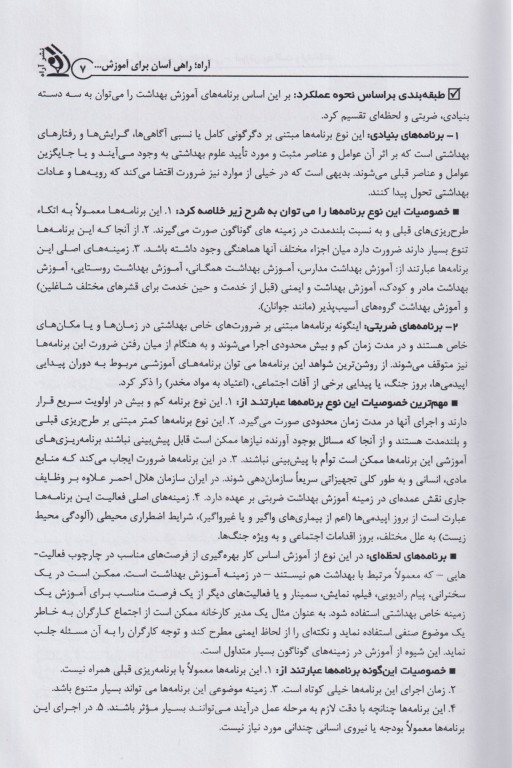 آراه؛ راهی آسان برای آموزش... ۷
نشر آراه
طبقه‌بندی براساس نحوه عملکرد: بر این اساس برنامه‌های آموزش بهداشت را می‌توان به سه دسته
بنیادی، ضربتی و لحظه‌ای تقسیم کرد.
۱– برنامه‌های بنیادی: این نوع برنامه‌ها مبتنی بر دگرگونی کامل یا نسبی آگاهی‌ها، گرایش‌ها و رفتارهای
بهداشتی است که بر اثر آن عوامل و عناصر مثبت و مورد تأیید علوم بهداشتی به وجود می‌آیند و یا جایگزین
عوامل و عناصر قبلی می‌شوند. بدیهی است که در خیلی از موارد نیز ضرورت اقتضا می‌کند که رویه‌ها و عادات
بهداشتی تحول پیدا کنند.
▪ خصوصیات این نوع برنامه‌ها را می توان به شرح زیر خلاصه کرد: ۱. این برنامه‌ها معمولاً به اتکاء
طرح‌ریزی‌های قبلی و به نسبت بلندمدت در زمینه های گوناگون صورت می‌گیرند. ۲. از آنجا که این برنامه‌ها
تنوع بسیار دارند ضرورت دارد میان اجزاء مختلف آنها هماهنگی وجود داشته باشد. ۳. زمینه‌های اصلی این
برنامه‌ها عبارتند از: آموزش بهداشت مدارس، آموزش بهداشت همگانی، آموزش بهداشت روستایی، آموزش
بهداشت مادر و کودک، آموزش بهداشت و ایمنی (قبل از خدمت و حین خدمت برای قشرهای مختلف شاغلین)
و آموزش بهداشت گروه‌های آسیب‌پذیر (مانند جوانان).
۲– برنامه‌های ضربتی: اینگونه برنامه‌ها مبتنی بر ضرورت‌های خاص بهداشتی در زمان‌ها و یا مکان‌های
خاص هستند و در مدت زمان کم و بیش محدودی اجرا می‌شوند و به هنگام از میان رفتن ضرورت این برنامه‌ها
نیز متوقف می‌شوند. از روشن‌ترین شواهد این برنامه‌ها می توان برنامه‌های آموزشی مربوط به دوران پیدایی
اپیدمی‌ها، بروز جنگ، یا پیدایی برخی از آفات اجتماعی، (اعتیاد به مواد مخدر) را ذکر کرد.
▪ مهم‌ترین خصوصیات این نوع برنامه‌ها عبارتند از: ۱. این نوع برنامه کم و بیش در اولویت سریع قرار
دارند و اجرای آنها در مدت زمان محدودی صورت می‌گیرد. ۲. این نوع برنامه‌ها کمتر مبتنی بر طرح‌ریزی قبلی و
بلندمدت هستند و از آنجا که مسائل بوجود آورنده نیازها ممکن است قابل پیش‌بینی نباشند برنامه‌ریزی‌های
آموزشی این برنامه‌ها ممکن است توأم با پیش‌بینی نباشند. ۳. در این برنامه‌ها ضرورت ایجاب می‌کند که منابع
مادی، انسانی و به طور کلی تجهیزاتی سریعاً سازمان‌دهی شوند. در ایران سازمان هلال احمر علاوه بر وظایف
جاری نقش عمده‌ای در زمینه آموزش بهداشت ضربتی بر عهده دارد. ۴. زمینه‌های اصلی فعالیت این برنامه‌ها
عبارت است از بروز اپیدمی‌ها (اعم از بیماری‌های واگیر و یا غیرواگیر)، شرایط اضطراری محیطی (آلودگی محیط
زیست) به علل مختلف، بروز اقدامات اجتماعی و به ویژه جنگ‌ها.
▪ برنامه‌های لحظه‌ای: در این نوع از آموزش اساس کار بهره‌گیری از فرصت‌های مناسب در چارچوب فعالیت-
هایی – که معمولاً مرتبط با بهداشت هم نیستند – در زمینه آموزش بهداشت است. ممکن است در یک
سخنرانی، پیام رادیویی، فیلم، نمایش، سمینار و یا فعالیت‌های دیگر از یک فرصت مناسب برای آموزش یک
زمینه خاص بهداشتی استفاده شود. به عنوان مثال یک مدیر کارخانه ممکن است از اجتماع کارگران به خاطر
یک موضوع صنفی استفاده نماید و نکته‌ای را از لحاظ ایمنی مطرح کند و توجه کارگران را به آن مسئله جلب
نماید. این شیوه از آموزش در زمینه‌های گوناگون بسیار متداول است.
▪ خصوصیات این‌گونه برنامه‌ها عبارتند از: ۱. این برنامه‌ها معمولاً با برنامه‌ریزی قبلی همراه نیست.
۲. زمان اجرای این برنامه‌ها خیلی کوتاه است. ۳. زمینه موضوعی این برنامه‌ها می تواند بسیار متنوع باشد.
۴. این برنامه‌ها چنانچه با دقت لازم به مرحله عمل درآیند می‌توانند بسیار مؤثر باشند. ۵. در اجرای این
برنامه‌ها معمولاً بودجه یا نیروی انسانی چندانی مورد نیاز نیست.